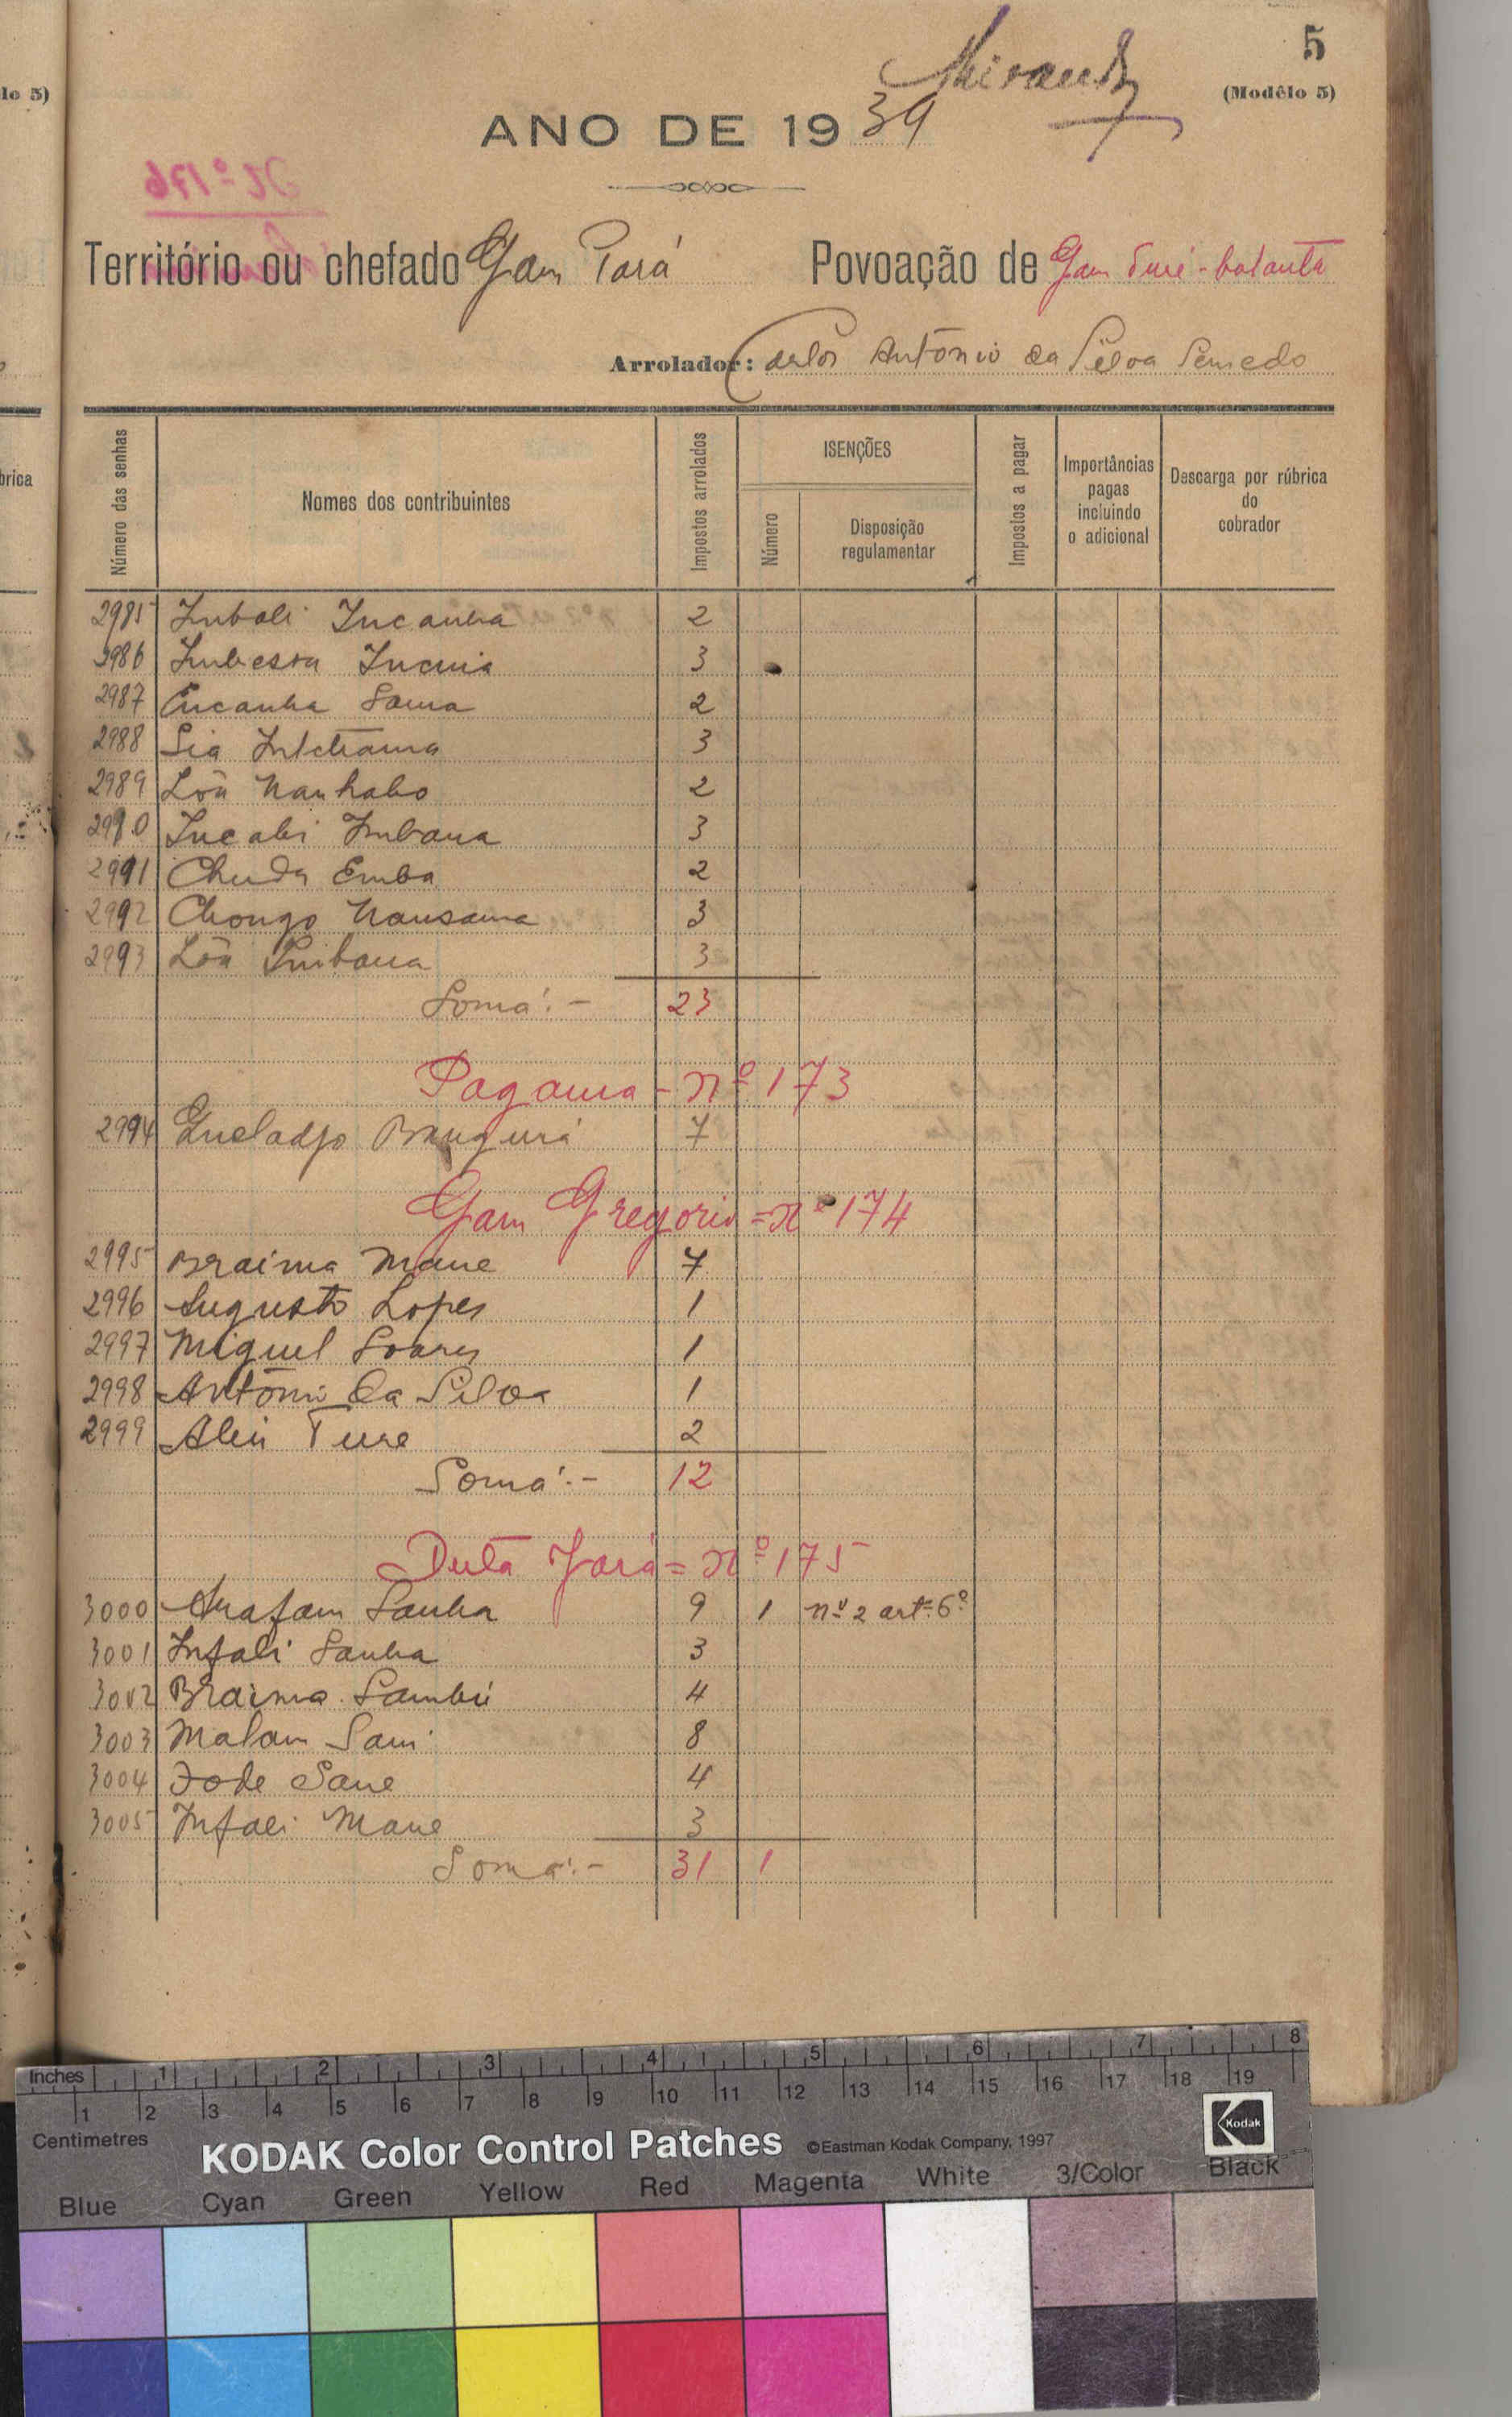 5
Miranda
(Modêlo 5)
ANO DE 1939
Território ou chefado Gam Pará Povoação de Gam Turé-balanta
Arrolador: Carlos António da Silva Semedo
Número das senhas
Nomes dos contribuintes
Impostos arrolados
ISENÇÕES
Número
Disposição regulamentar
Impostos a pagar
Importâncias pagas incluindo o adicional
Descarga por rúbrica do cobrador
2985 Imbali Incanha 2
2986 3
2987 Encanha Sama 2
2988 Sia 3
2989 Lôa Nanhabo 2
2990 Incabi Imbana 3
2991 Chuda Emba 2
2992 Chongo Nansama 3
2993 Lôa Imbana 3
Soma:- 23
Pagama - nº 173
2994 Gueladjo Bangurá 7
Gam Gregorio = nº 174
2995 Braima Mane 7
2996 Augusto Lopes 1
2997 Miguel Soares 1
2998 António da Silva 1
2999 Aliu Ture 2
Soma:- 12
Dutá Jará = nº 175
3000 Arafam Sanha 9 1 nº 2 artº 6º
3001 Infali Sanha 3
3002 Braima Sambú 4
3003 Malam Sani 8
3004 Fode Sane 4
3005 Infali Mane 3
Soma:- 31 1
Inches 1 2 3 4 5 6 7 8
1 2 3 4 5 6 7 8 9 10 11 12 13 14 15 16 17 18 19
Centimetres
KODAK Color Control Patches ©Eastman Kodak Company, 1997
Kodak
Blue Cyan Green Yellow Red Magenta White 3/Color Black